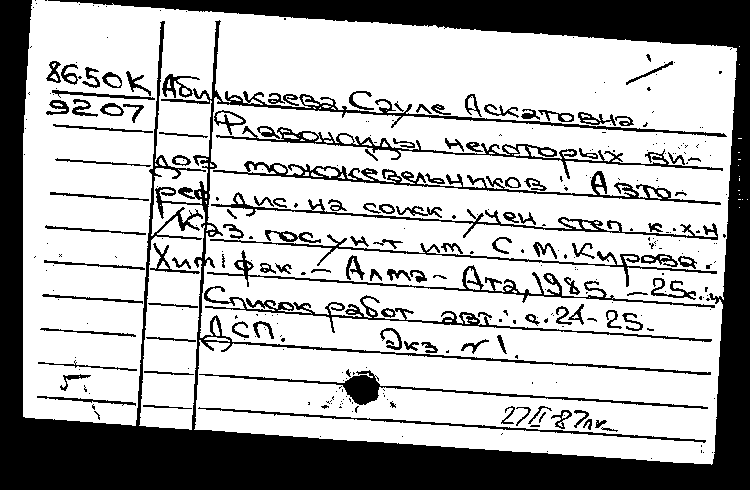 86-50К Абилькаева, Сауле Аскатовна.
92.07
Флавоноиды некоторых ви-
дов можжевельников: Авто-
реф. дис. на соиск. учен. степ. к.х.н.
/Каз. гос. ун-т им. С.М.Кирова.
Хим. фак. - Алма-Ата, 1985. - 25с.
Список работ авт.: с. 24-25.
ДСП. Экз. №1.
27/II-87